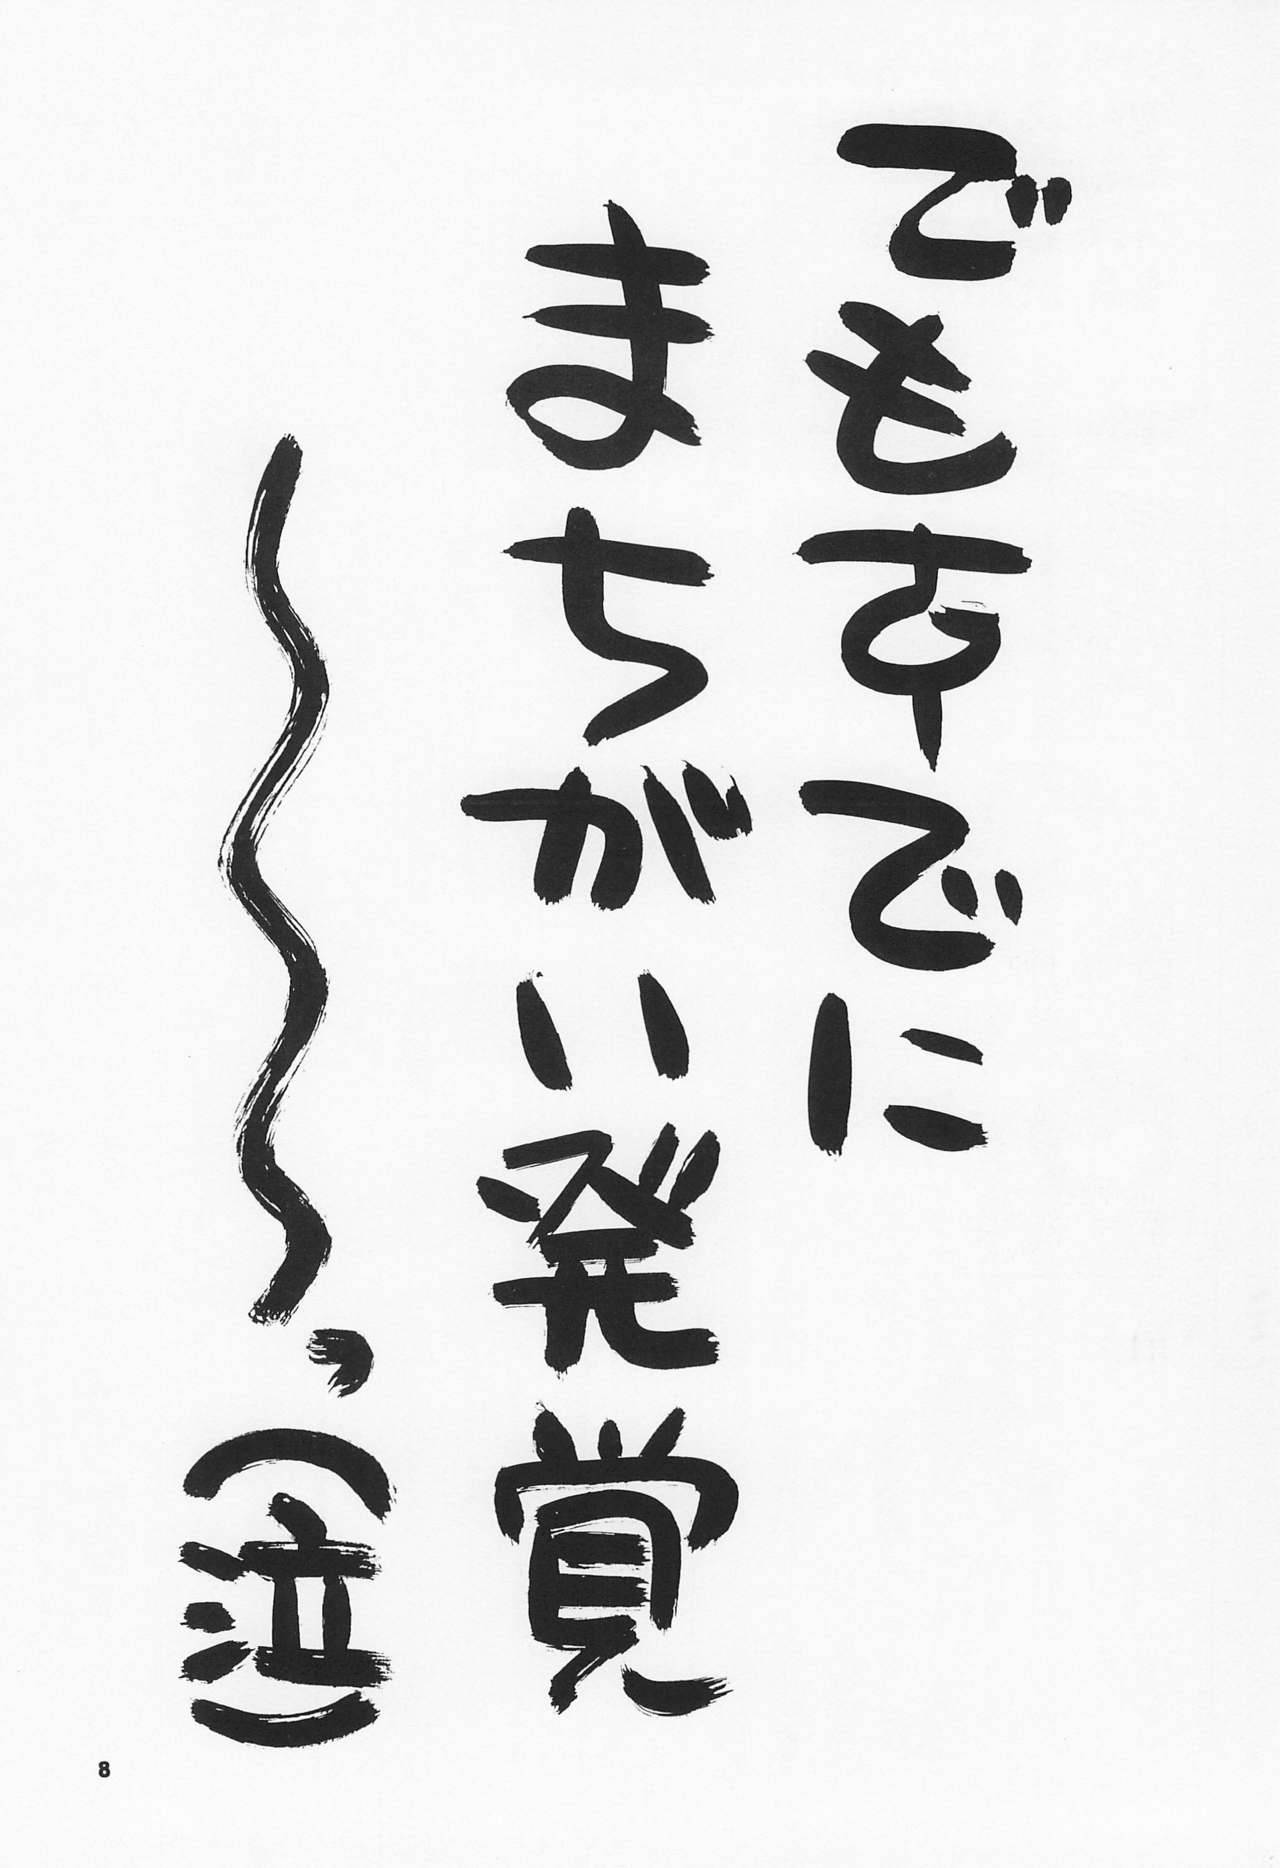 でもすでに
まちがい発覚
〜〜〜っ(泣)
8